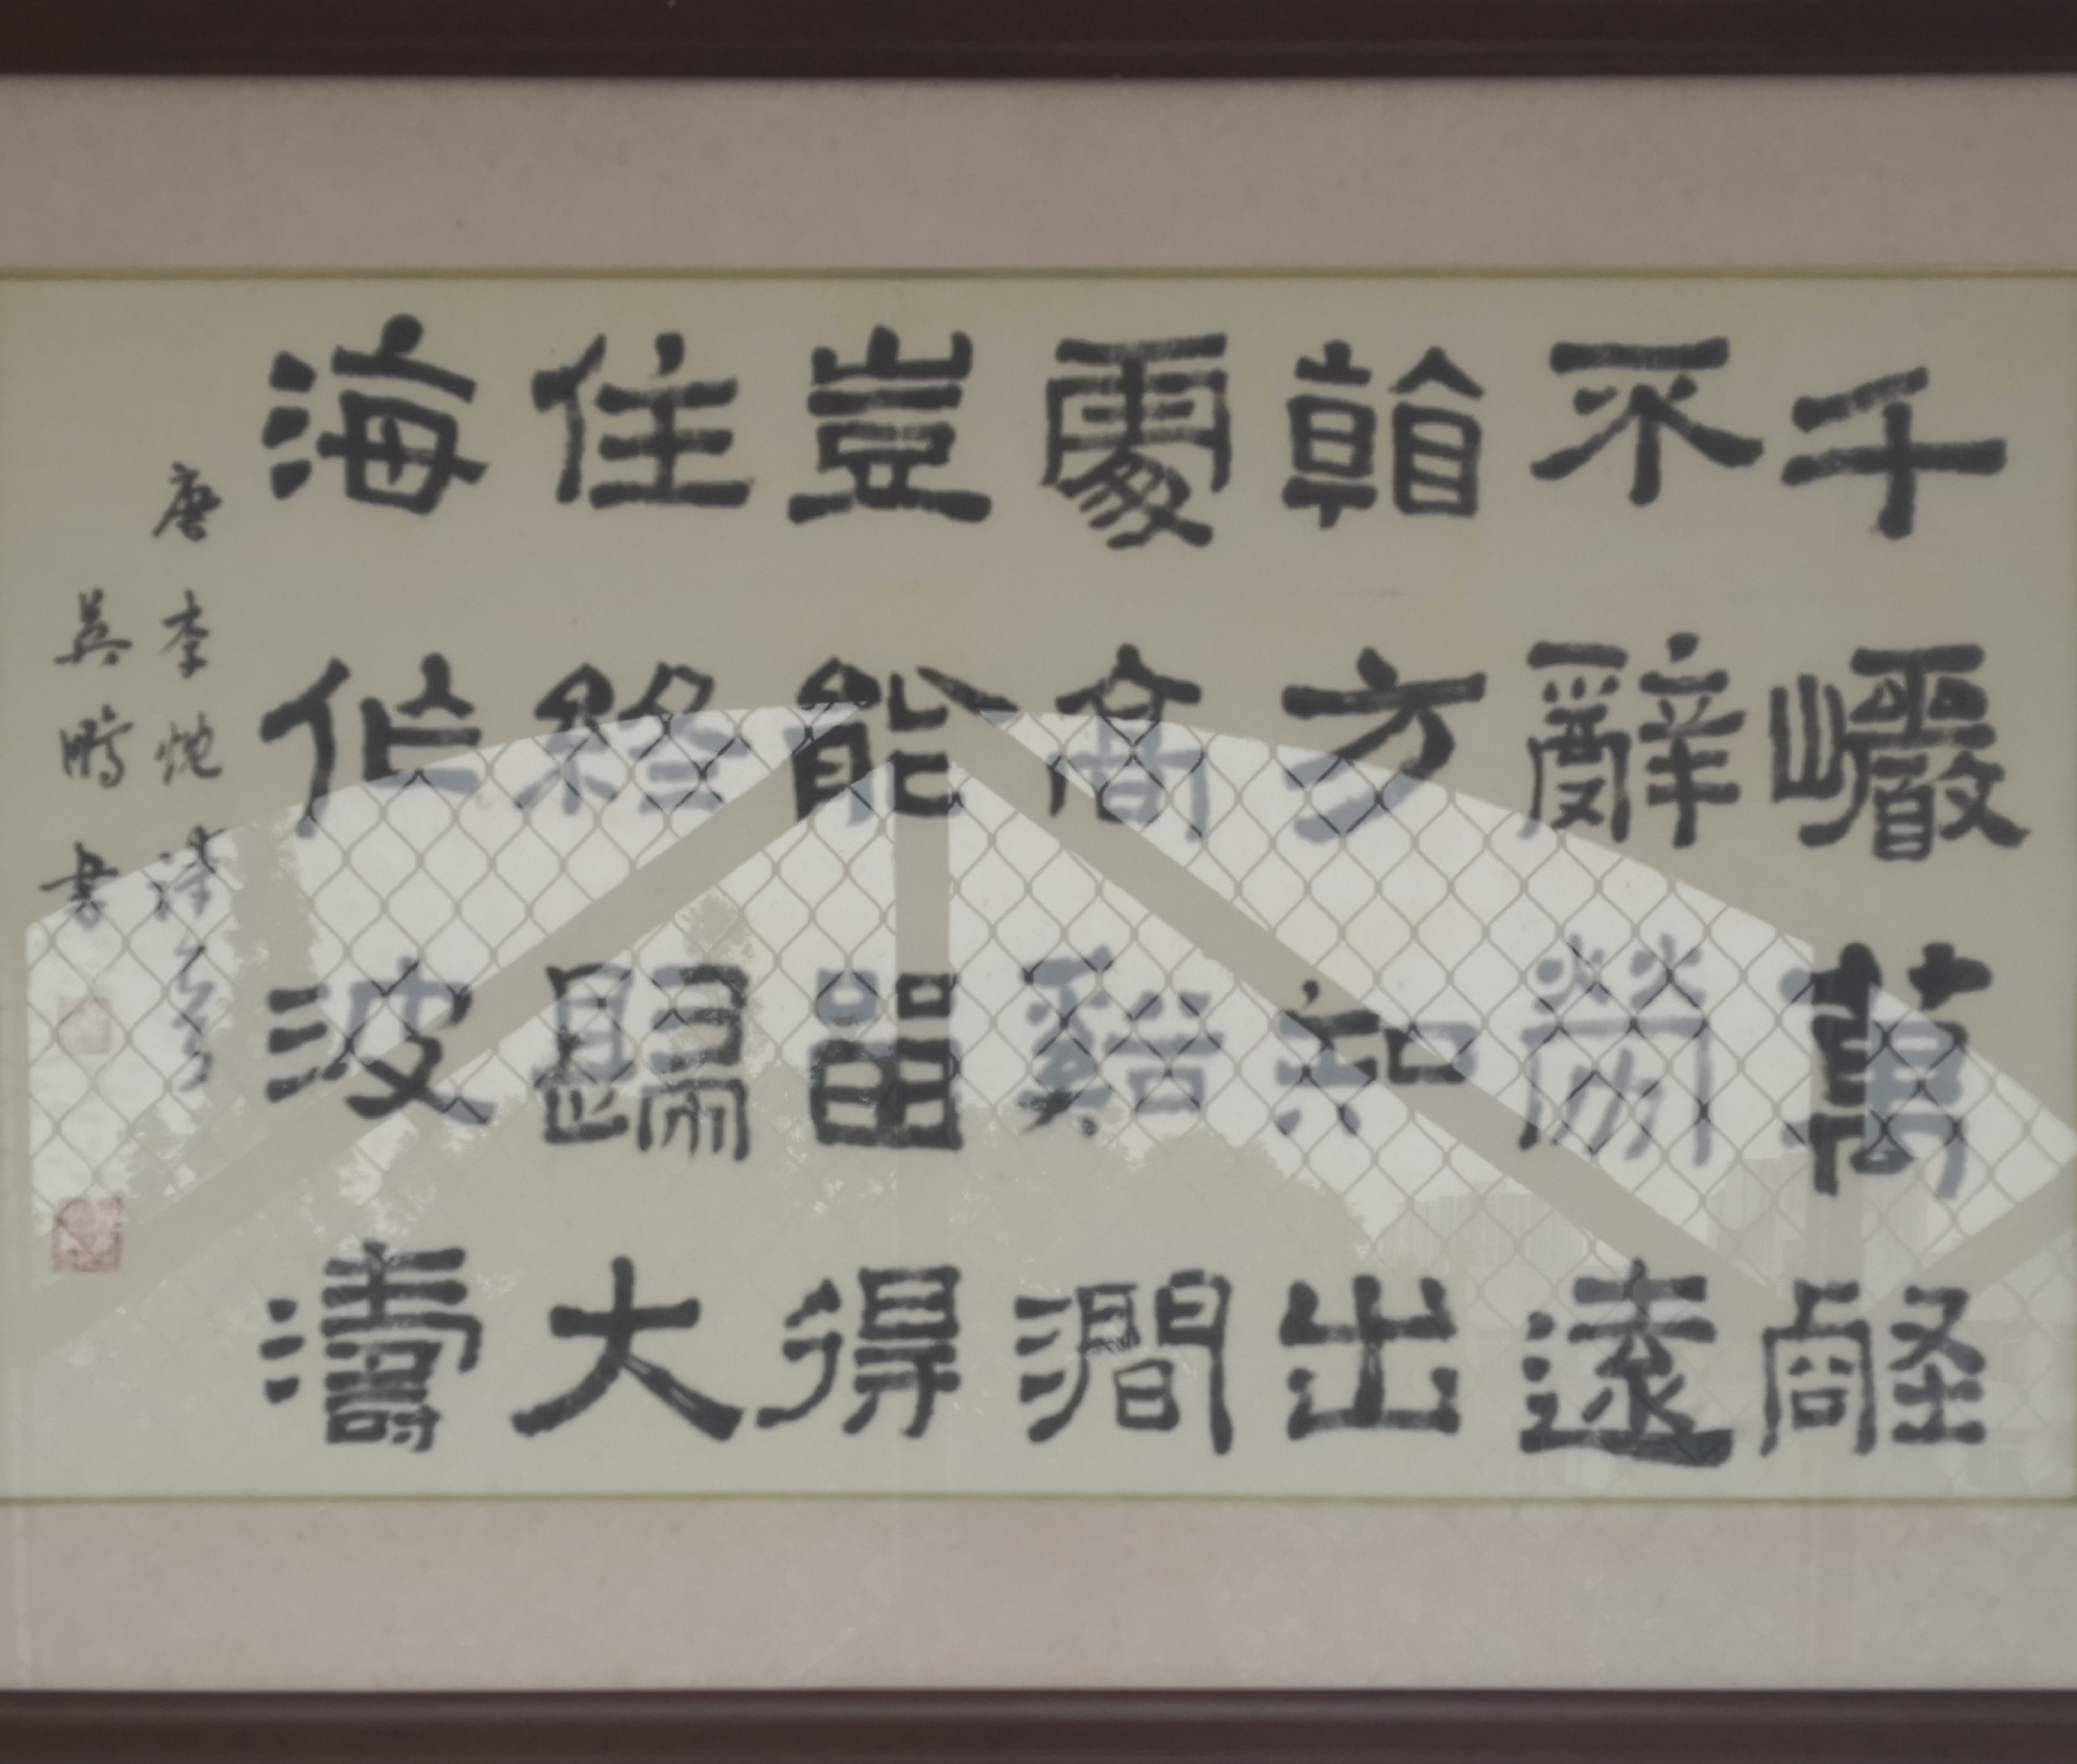 千巗萬壑
不辭勞遠
看方知出
處高谿澗
豈能畱得
住終歸大
海作波濤
唐李忱詩一首
吴鵬書